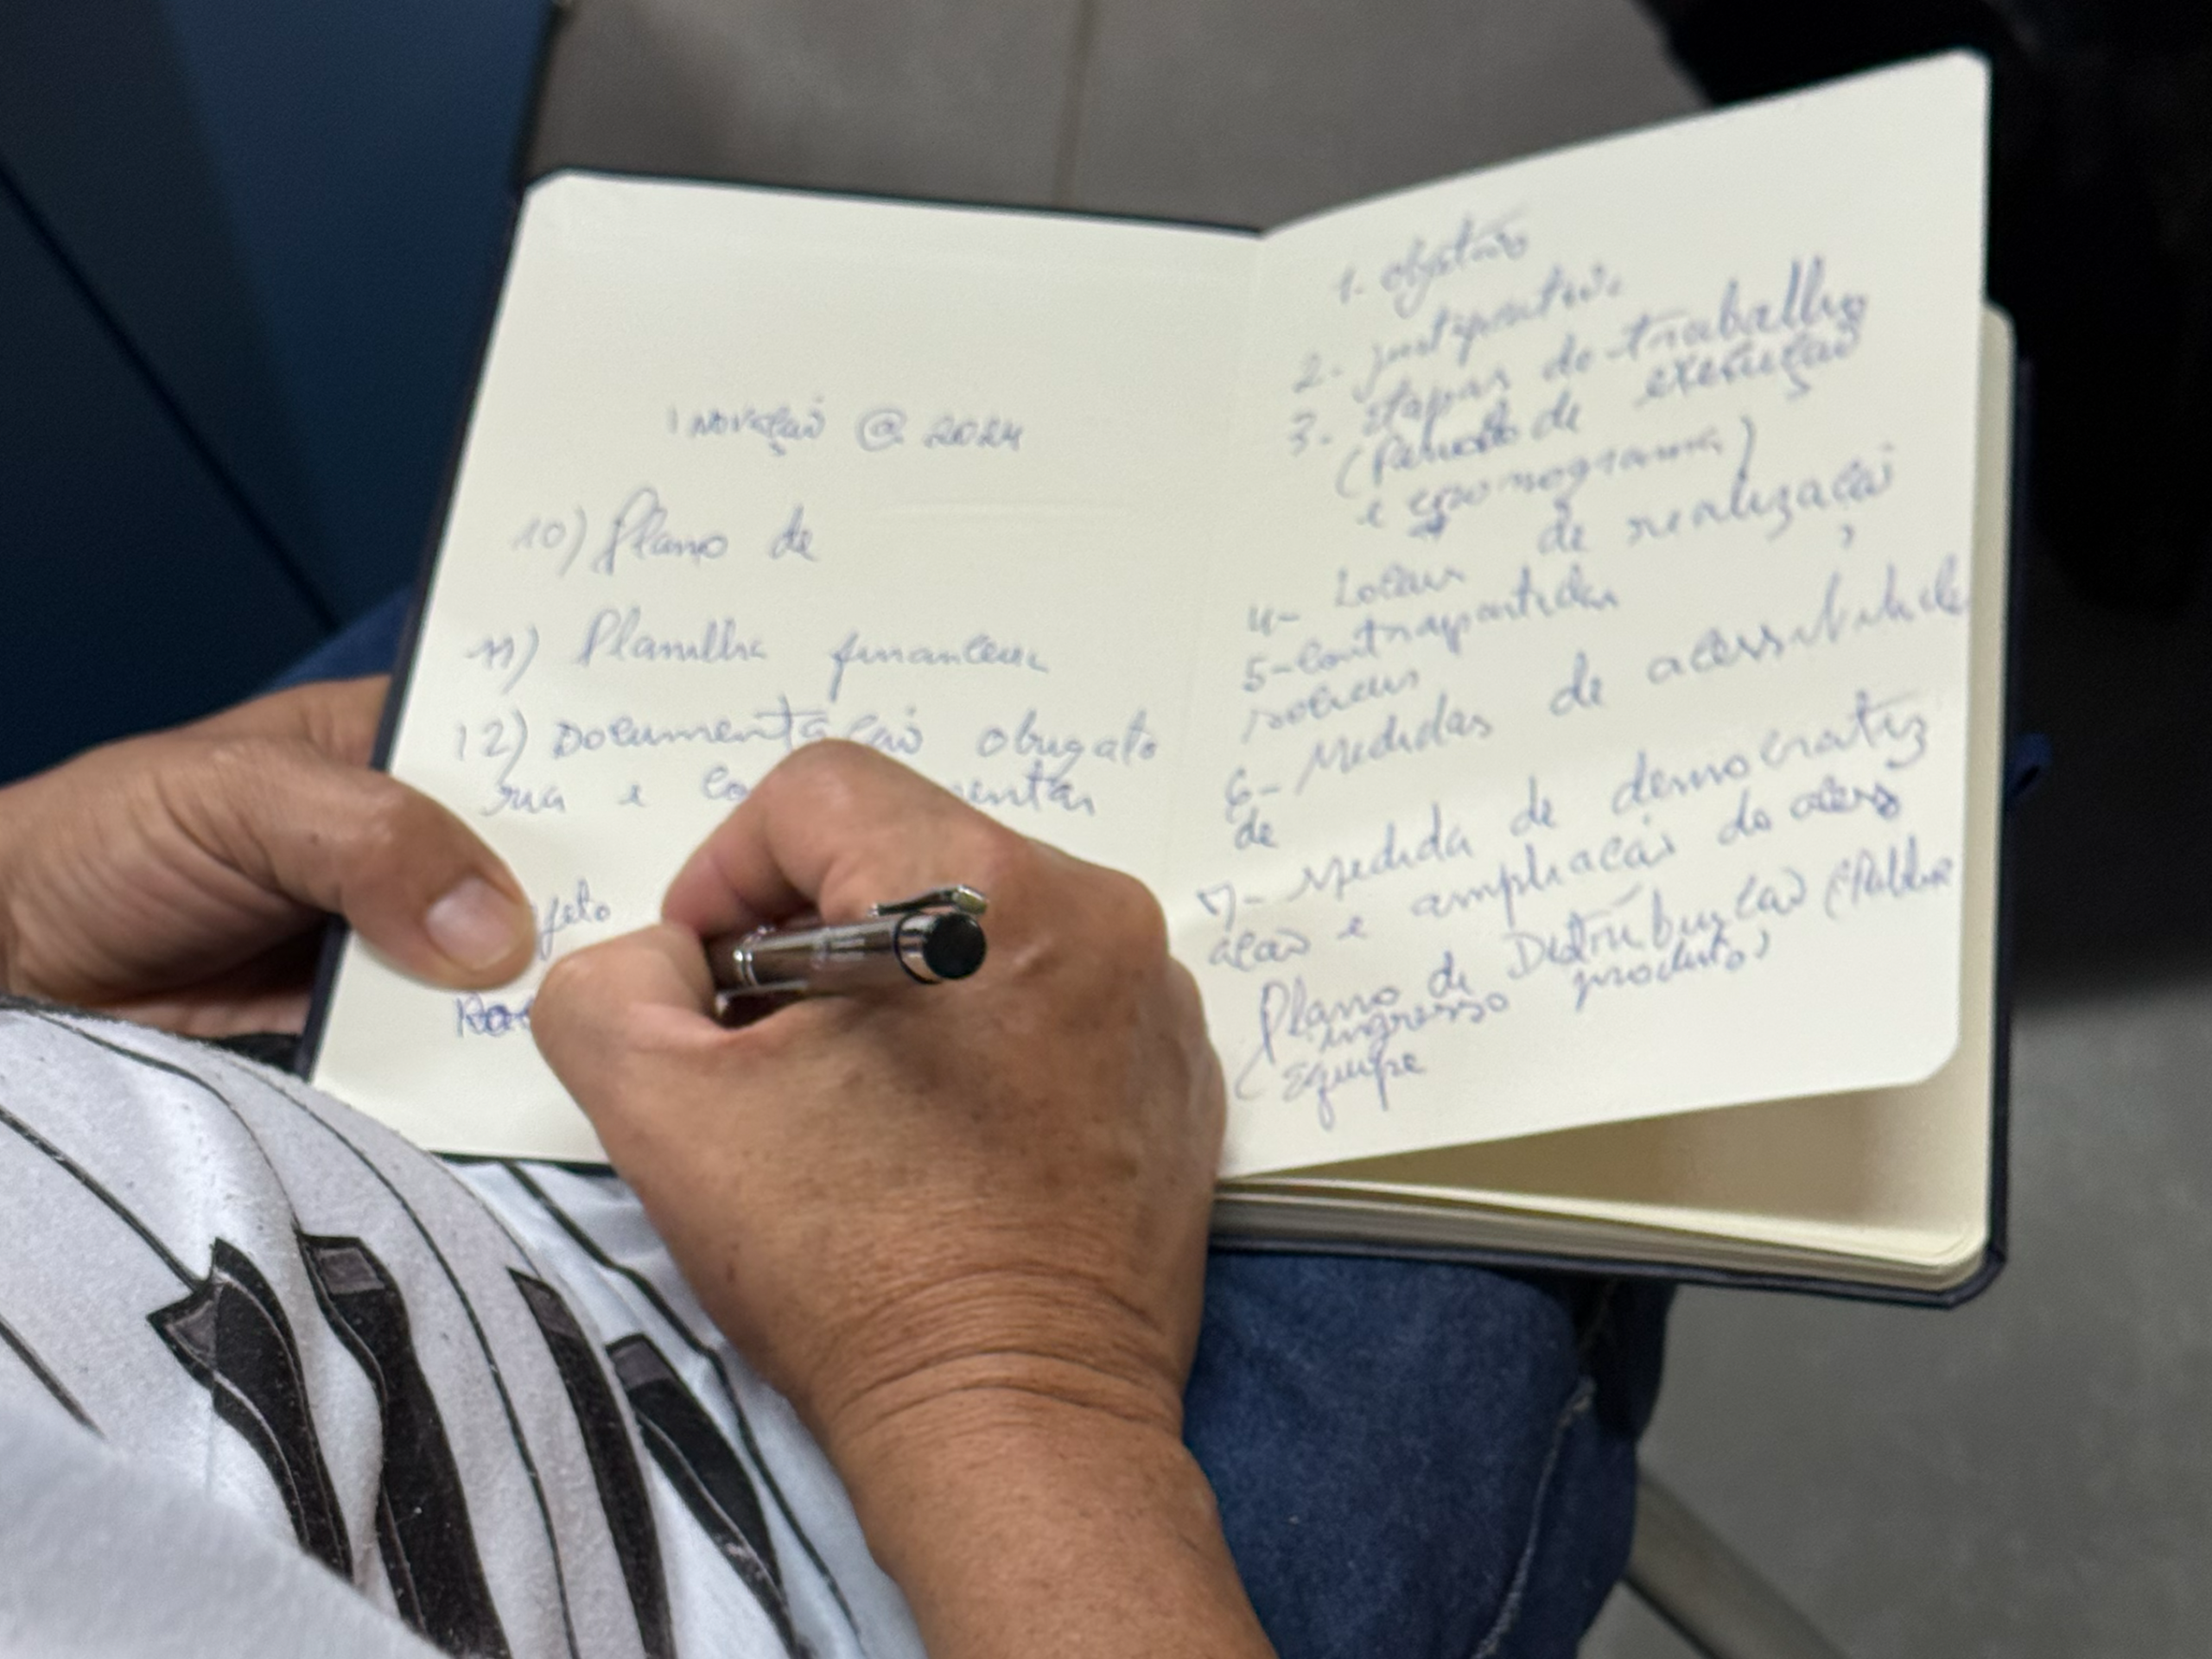 inovação @ 2024
10) Plano de
11) Planilha financeira
12) Documentação obrigató
ria e
jeto
1- objetivo
2- justificativa
3- etapas de trabalho
(Período de execução
e cronograma)
de realização
4- Locais
5- Contrapartidas
sociais
6- Medidas de acessibilidade
de
7- Medida de democratiz
ação e ampliação do acesso
Plano de Distribuição
ingresso produto,
(Equipe